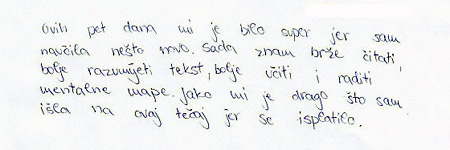 Ovih pet dana mi je bilo super jer sam
naučila nešto novo. Sada znam brže čitati,
bolje razumjeti tekst, bolje učiti i raditi
mentalne mape. Jako mi je drago što sam
išla na ovaj tečaj jer se isplatilo.